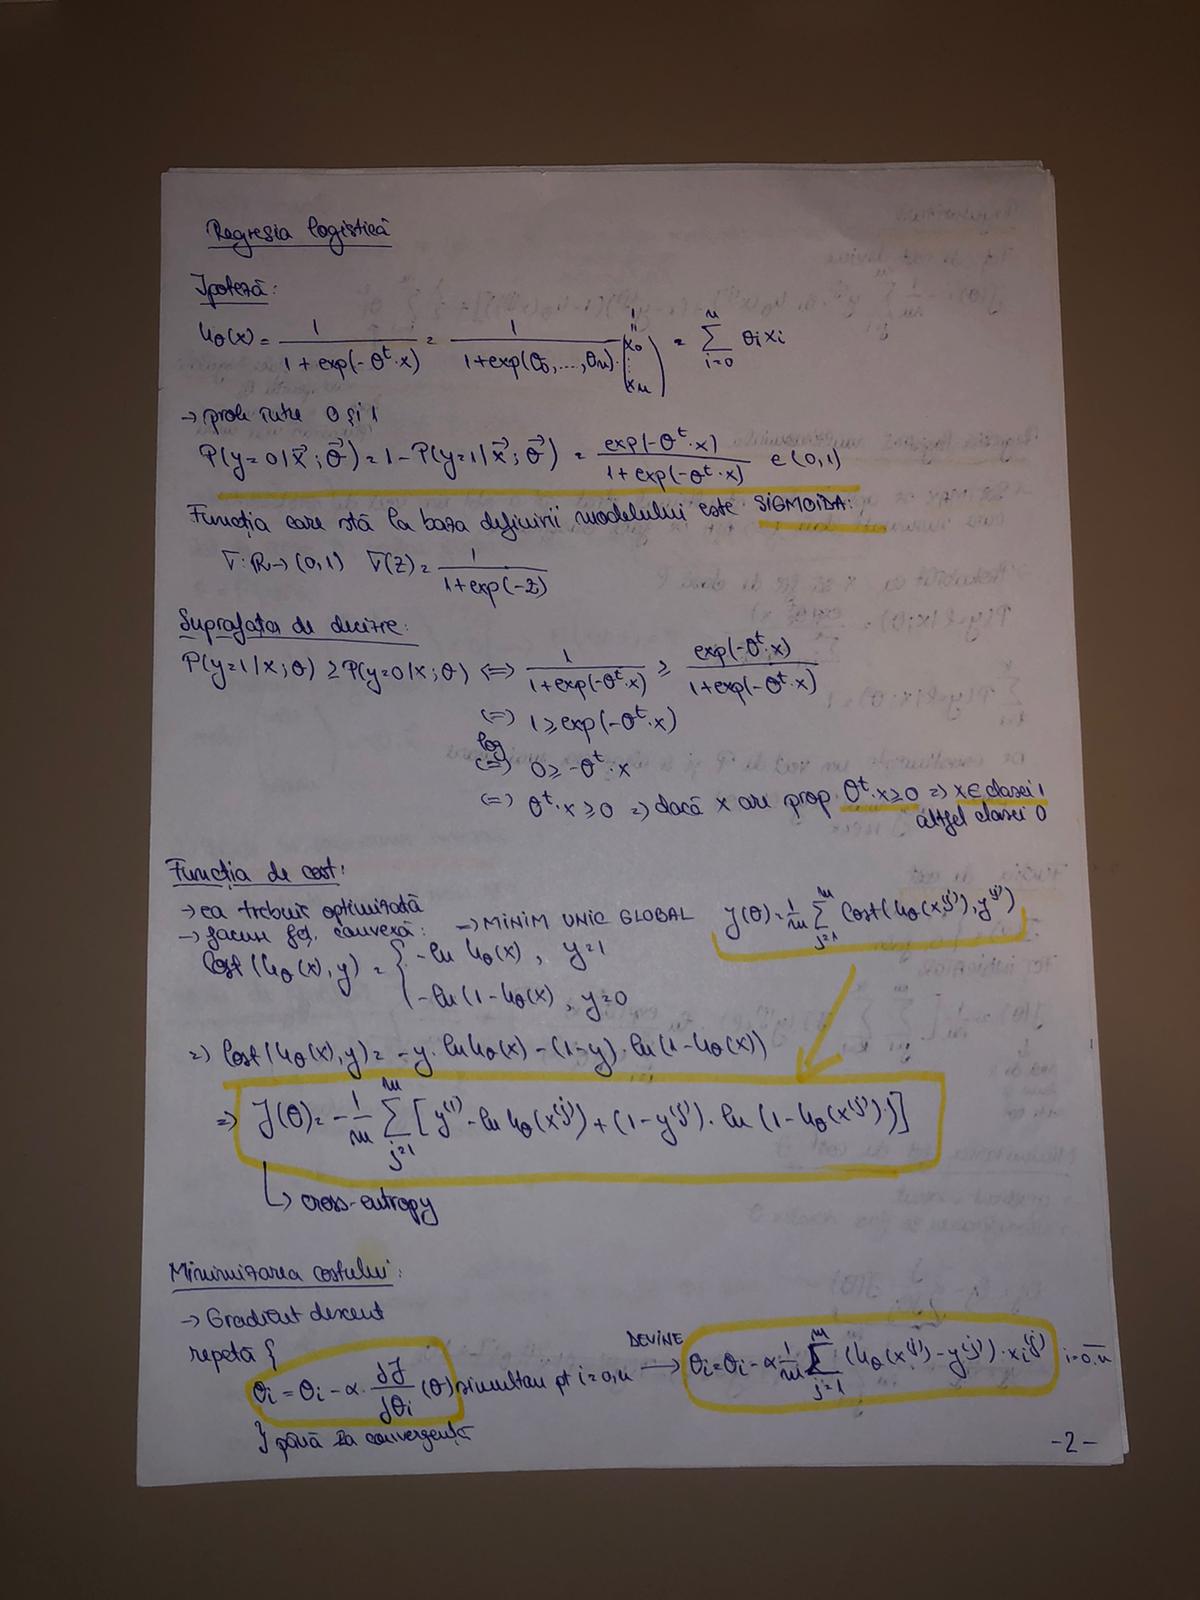 Regresia logistică
Ipoteză:
hθ(x) = 1 / (1 + exp(-θᵗ·x)) = 1 / (1+exp(θ0,...,θn)·(x0 ⋮ xn)) = Σ_{i=0}^{n} θi xi
1 = x0
→ prob între 0 și 1
P(y=0|x⃗; θ⃗) = 1 - P(y=1|x⃗; θ⃗) = exp(-θᵗ·x) / (1+exp(-θᵗ·x)) ∈ (0,1)
Funcția care stă la baza definirii modelului este SIGMOIDA:
σ: R → (0,1) σ(z) = 1 / (1+exp(-z))
Suprafața de decizie:
P(y=1|x;θ) ≥ P(y=0|x;θ) ⟺ 1 / (1+exp(-θᵗ·x)) ≥ exp(-θᵗ·x) / (1+exp(-θᵗ·x))
⟺ 1 ≥ exp(-θᵗ·x)
log
⟺ 0 ≥ -θᵗ·x
⟺ θᵗ·x ≥ 0 ⇒ dacă x are prop. θᵗ·x ≥ 0 ⇒ x ∈ clasei 1
altfel clasei 0
Funcția de cost:
→ ea trebuie optimizată
→ facem fct. convexă: ⇒ MINIM UNIC GLOBAL J(θ) = 1/m Σ_{j=1}^{m} Cost(hθ(x^(j)), y^(j))
Cost(hθ(x), y) = { -ln hθ(x), y=1
-ln(1-hθ(x), y=0
⇒ Cost(hθ(x), y) = -y·ln hθ(x) - (1-y)·ln(1-hθ(x))
⇒ J(θ) = -1/m Σ_{j=1}^{m} [y^(j)·ln hθ(x^(j)) + (1-y^(j))·ln(1-hθ(x^(j)))]
↳ cross-entropy
Minimizarea costului:
→ Gradient descent
repetă {
θi = θi - α · ∂J/∂θi (θ) simultan pt i=0,n DEVINE → θi = θi - α 1/m Σ_{j=1}^{m} (hθ(x^(j)) - y^(j))·xi^(j) i=0,n
} până la convergență
-2-